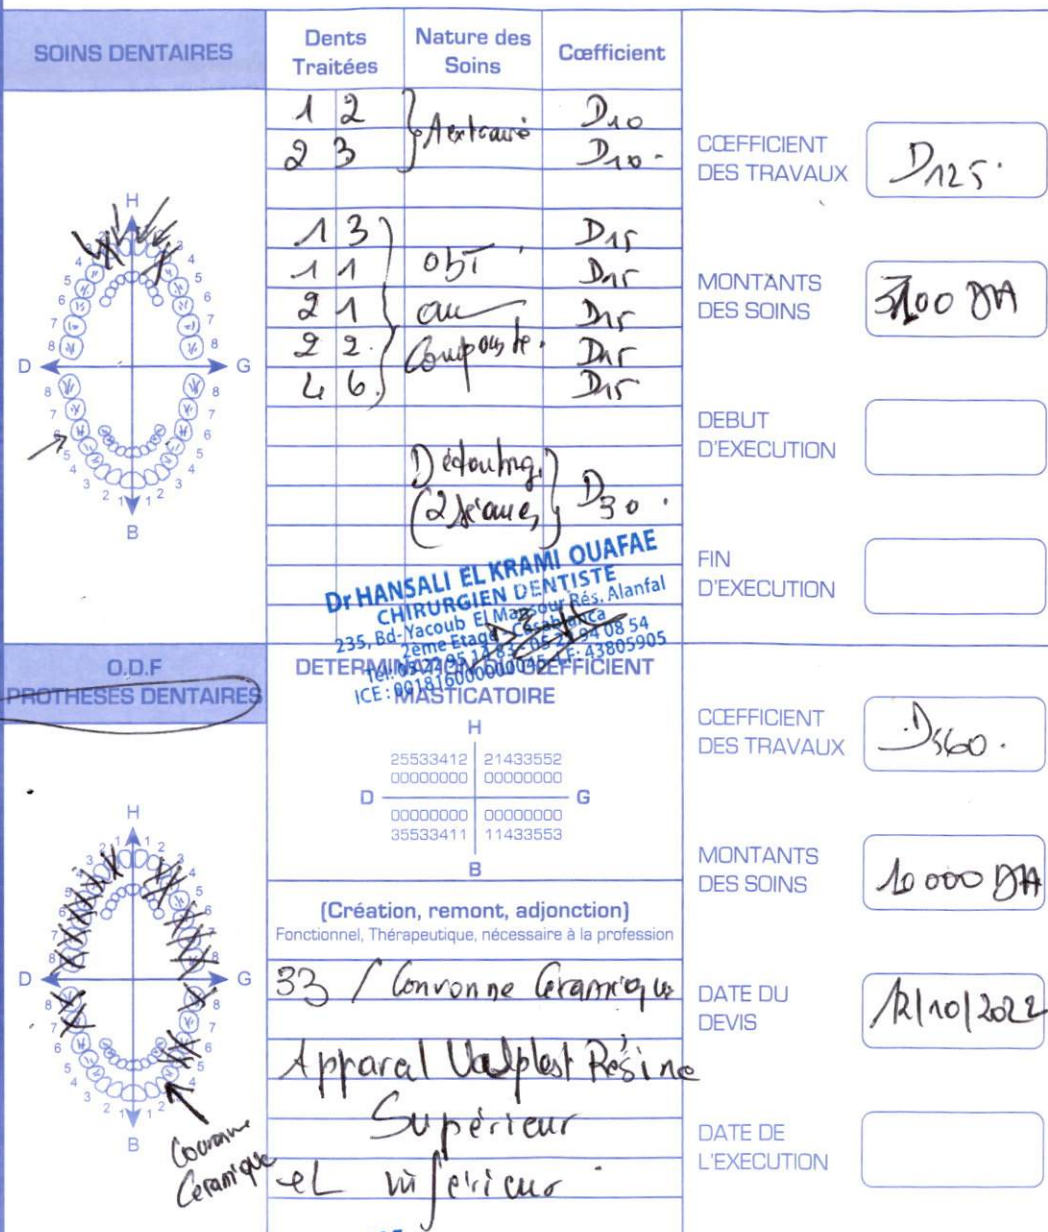 SOINS DENTAIRES
Dents Traitées
Nature des Soins
Cœfficient
1 2 D10
2 3 D10.
1 3 D15
1 1 obt D15
2 1 au D15
2 2. Composite. D15
4 6. D15
(2 séances) D30.
H
D
G
B
CŒFFICIENT DES TRAVAUX
D125.
MONTANTS DES SOINS
DEBUT D'EXECUTION
FIN D'EXECUTION
Dr HANSALI EL KRAMI OUAFAE
CHIRURGIEN DENTISTE
235, Bd-Yacoub El Mansour Rés. Alanfal
2ème Etage - Casablanca
ICE : 001816000000045
43805905
O.D.F
PROTHESES DENTAIRES
DETERMINATION DU CŒFFICIENT
MASTICATOIRE
H
25533412 21433552
00000000 00000000
D G
00000000 00000000
35533411 11433553
B
(Création, remont, adjonction)
Fonctionnel, Thérapeutique, nécessaire à la profession
33 / Couronne Ceramique
Appareil Valplast Résine
Supérieur
et inférieur.
H
D
G
B
Couronne
Ceramique
CŒFFICIENT DES TRAVAUX
D560.
MONTANTS DES SOINS
10 000 DH
DATE DU DEVIS
12/10/2022
DATE DE L'EXECUTION